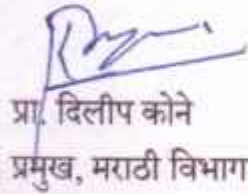 प्रा. दिलीप कोने
प्रमुख, मराठी विभाग